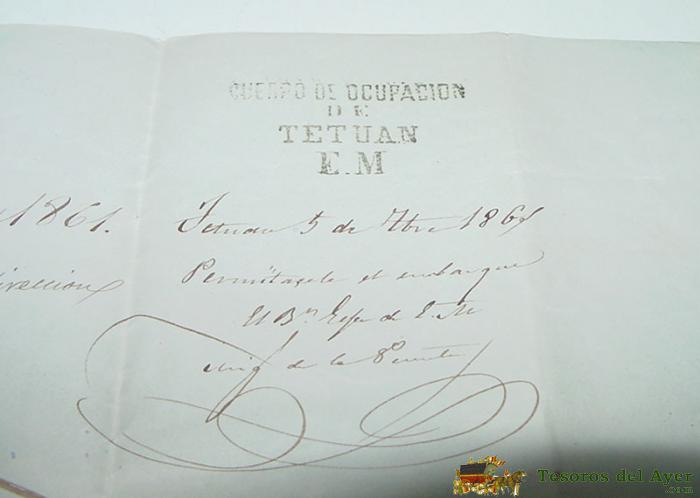 CUERPO DE OCUPACION
DE
TETUAN
E.M
1861.
Tetuan 5 de 7bre 1861
Permitasele el embarque
El Bn. Gefe de E. M
de la Puente
Tesoros del Ayer
.com